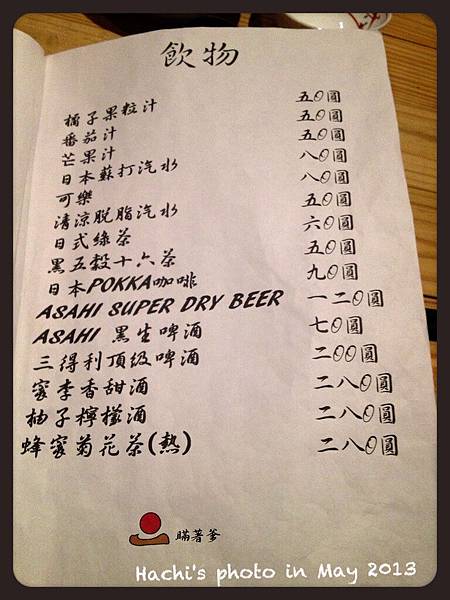 飲物
橘子果粒汁 五0圓
番茄汁 五0圓
芒果汁 五0圓
日本蘇打汽水 八0圓
可樂 八0圓
清涼脫脂汽水 五0圓
日式綠茶 六0圓
黑五穀十六茶 五0圓
日本POKKA咖啡 九0圓
ASAHI SUPER DRY BEER 一二0圓
ASAHI 黑生啤酒 七0圓
三得利頂級啤酒 二00圓
蜜李香甜酒 二八0圓
柚子檸檬酒 二八0圓
蜂蜜菊花茶(熱) 二八0圓
瞞著爹
Hachi's photo in May 2013